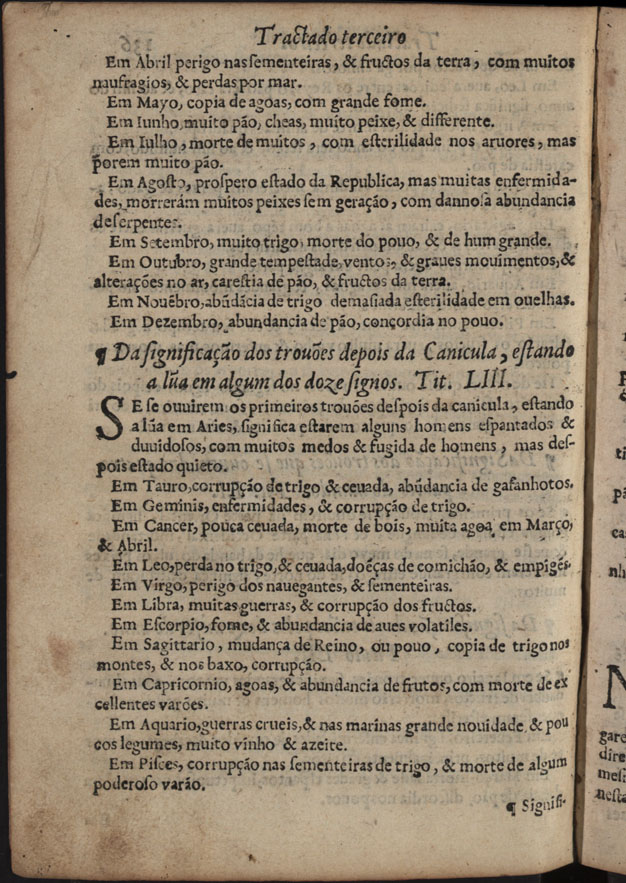 Tractado terceiro
Em Abril perigo nas sementeiras, & fructos da terra, com muitos
naufragios, & perdas por mar.
Em Mayo, copia de agoas, com grande fome.
Em Iunho, muito pão, cheas, muito peixe, & differente.
Em Iulho, morte de muitos, com esterilidade nos aruores, mas
porem muito pão.
Em Agosto, prospero estado da Republica, mas muitas enfermida-
des, morrerám muitos peixes sem geração, com dannosa abundancia
de serpentes.
Em Setembro, muito trigo, morte do pouo, & de hum grande.
Em Outubro, grande tempestade, ventos, & graues mouimentos, &
alterações no ar, carestia de pão, & fructos da terra.
Em Nouẽbro, abũdãcia de trigo demasiada esterilidade em ouelhas.
Em Dezembro, abundancia de pão, concordia no pouo.
¶ Da significação dos trouões depois da Canicula, estando
a lũa em algum dos doze signos. Tit. LIII.
SE se ouuirem os primeiros trouões despois da canicula, estando
a lũa em Aries, significa estarem alguns homens espantados &
duuidosos, com muitos medos & fugida de homens, mas des-
pois estado quieto.
Em Tauro, corrupção de trigo & ceuada, abũdancia de gafanhotos.
Em Geminis, enfermidades, & corrupção de trigo.
Em Cancer, pouca ceuada, morte de bois, muita agoa em Março,
& Abril.
Em Leo, perda no trigo, & ceuada, doẽças de comichão, & empigẽs.
Em Virgo, perigo dos nauegantes, & sementeiras.
Em Libra, muitas guerras, & corrupção dos fructos.
Em Escorpio, fome, & abundancia de aues volatiles.
Em Sagittario, mudança de Reino, ou pouo, copia de trigo nos
montes, & nos baxo, corrupção.
Em Capricornio, agoas, & abundancia de frutos, com morte de ex
cellentes varões.
Em Aquario, guerras crueis, & nas marinas grande nouidade & pou
cos legumes, muito vinho & azeite.
Em Pisces, corrupção nas sementeiras de trigo, & morte de algum
poderoso varão.
¶ Signifi-